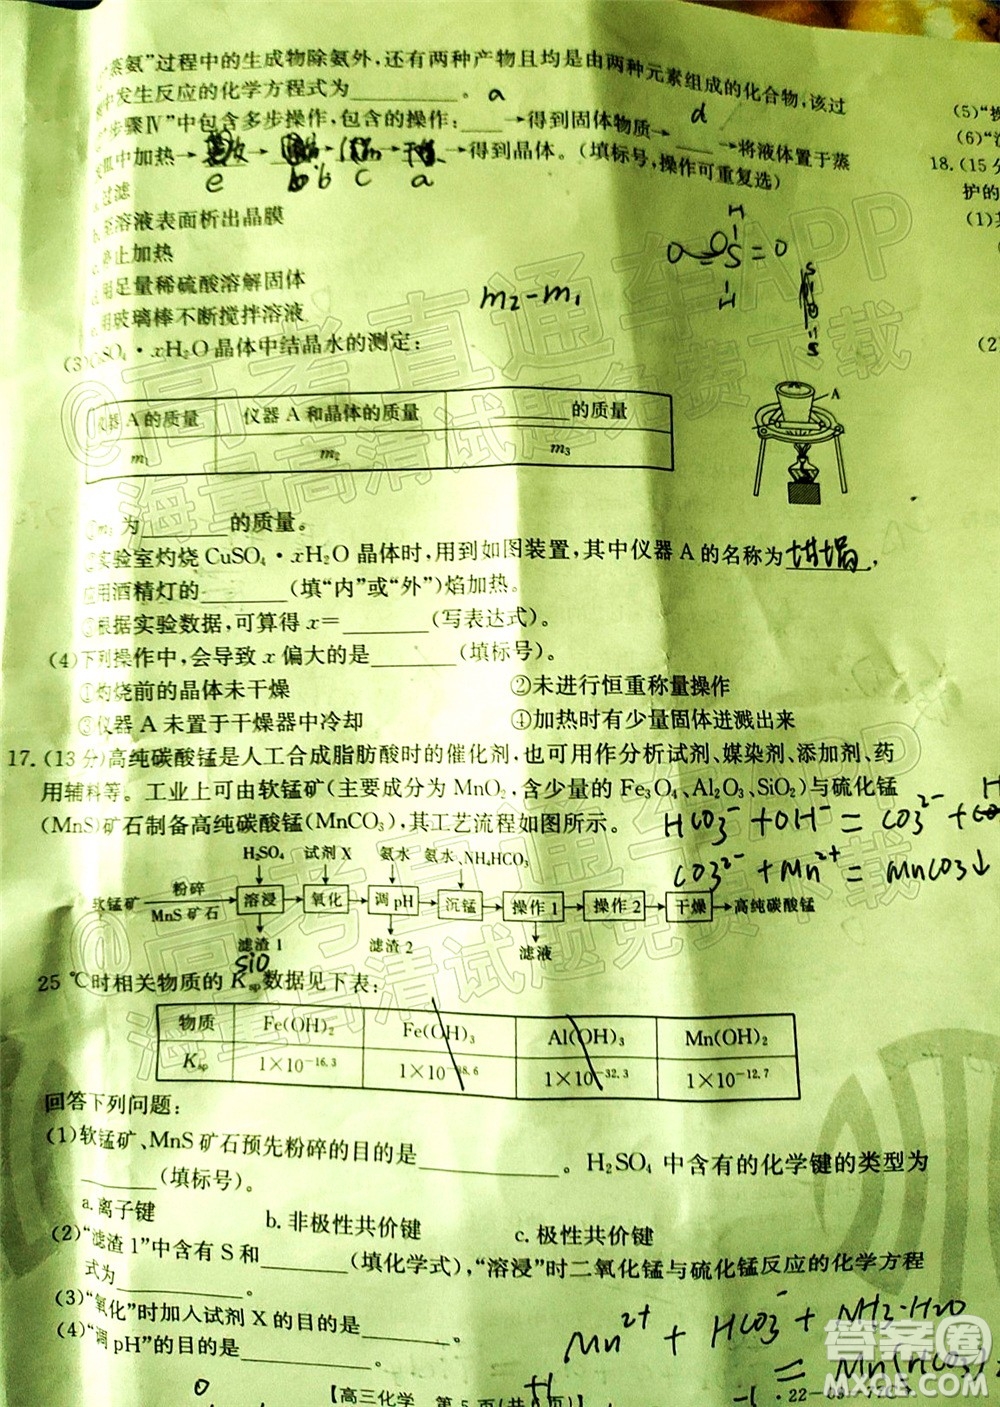 蒸氨”过程中的生成物除氨外,还有两种产物且均是由两种元素组成的化合物,该过
中发生反应的化学方程式为______。
步骤Ⅳ”中包含多步操作,包含的操作:____→得到固体物质→____→将液体置于蒸
中加热→ → → → →得到晶体。(填标号,操作可重复选)
a d
e b b c a
过滤
溶液表面析出晶膜
止加热
用足量稀硫酸溶解固体
用玻璃棒不断搅拌溶液
m₂-m₁
(3)CuSO₄·xH₂O晶体中结晶水的测定:
仪器A的质量 仪器A和晶体的质量 ______的质量
m₁ m₂ m₃
A
①m₃为______的质量。
②实验室灼烧CuSO₄·xH₂O晶体时,用到如图装置,其中仪器A的名称为坩埚,
应用酒精灯的______(填“内”或“外”)焰加热。
③根据实验数据,可算得x=______(写表达式)。
(4)下列操作中,会导致x偏大的是______(填标号)。
①灼烧前的晶体未干燥 ②未进行恒重称量操作
③仪器A未置于干燥器中冷却 ④加热时有少量固体迸溅出来
17.(13分)高纯碳酸锰是人工合成脂肪酸时的催化剂,也可用作分析试剂、媒染剂、添加剂、药
用辅料等。工业上可由软锰矿(主要成分为MnO₂,含少量的Fe₃O₄、Al₂O₃、SiO₂)与硫化锰
(MnS)矿石制备高纯碳酸锰(MnCO₃),其工艺流程如图所示。
HCO₃⁻+OH⁻=CO₃²⁻+
CO₃²⁻+Mn²⁺=MnCO₃↓
H₂SO₄ 试剂X 氨水 氨水、NH₄HCO₃
软锰矿 粉碎 MnS矿石 溶浸 氧化 调pH 沉锰 操作1 操作2 干燥 高纯碳酸锰
滤渣1 滤渣2 滤液
SiO
25 ℃时相关物质的Ksp数据见下表:
物质 Fe(OH)₂ Fe(OH)₃ Al(OH)₃ Mn(OH)₂
Ksp 1×10⁻¹⁶·³ 1×10⁻³⁸·⁶ 1×10⁻³²·³ 1×10⁻¹²·⁷
回答下列问题:
(1)软锰矿、MnS矿石预先粉碎的目的是__________。H₂SO₄中含有的化学键的类型为
______(填标号)。
a.离子键 b.非极性共价键 c.极性共价键
(2)“滤渣1”中含有S和______(填化学式),“溶浸”时二氧化锰与硫化锰反应的化学方程
式为______。
(3)“氧化”时加入试剂X的目的是______。
(4)“调pH”的目的是______。
Mn²⁺+HCO₃⁻+NH₃·H₂O
=Mn(HCO₃)₂
【高三化学 第5页(共 页)】
(5)“
(6)“
18.(15分
护的
(1)
(2)
@高考直通车APP
海量高清试题免费下载
@高考直通车APP
海量高清试题免费下载
答案圈